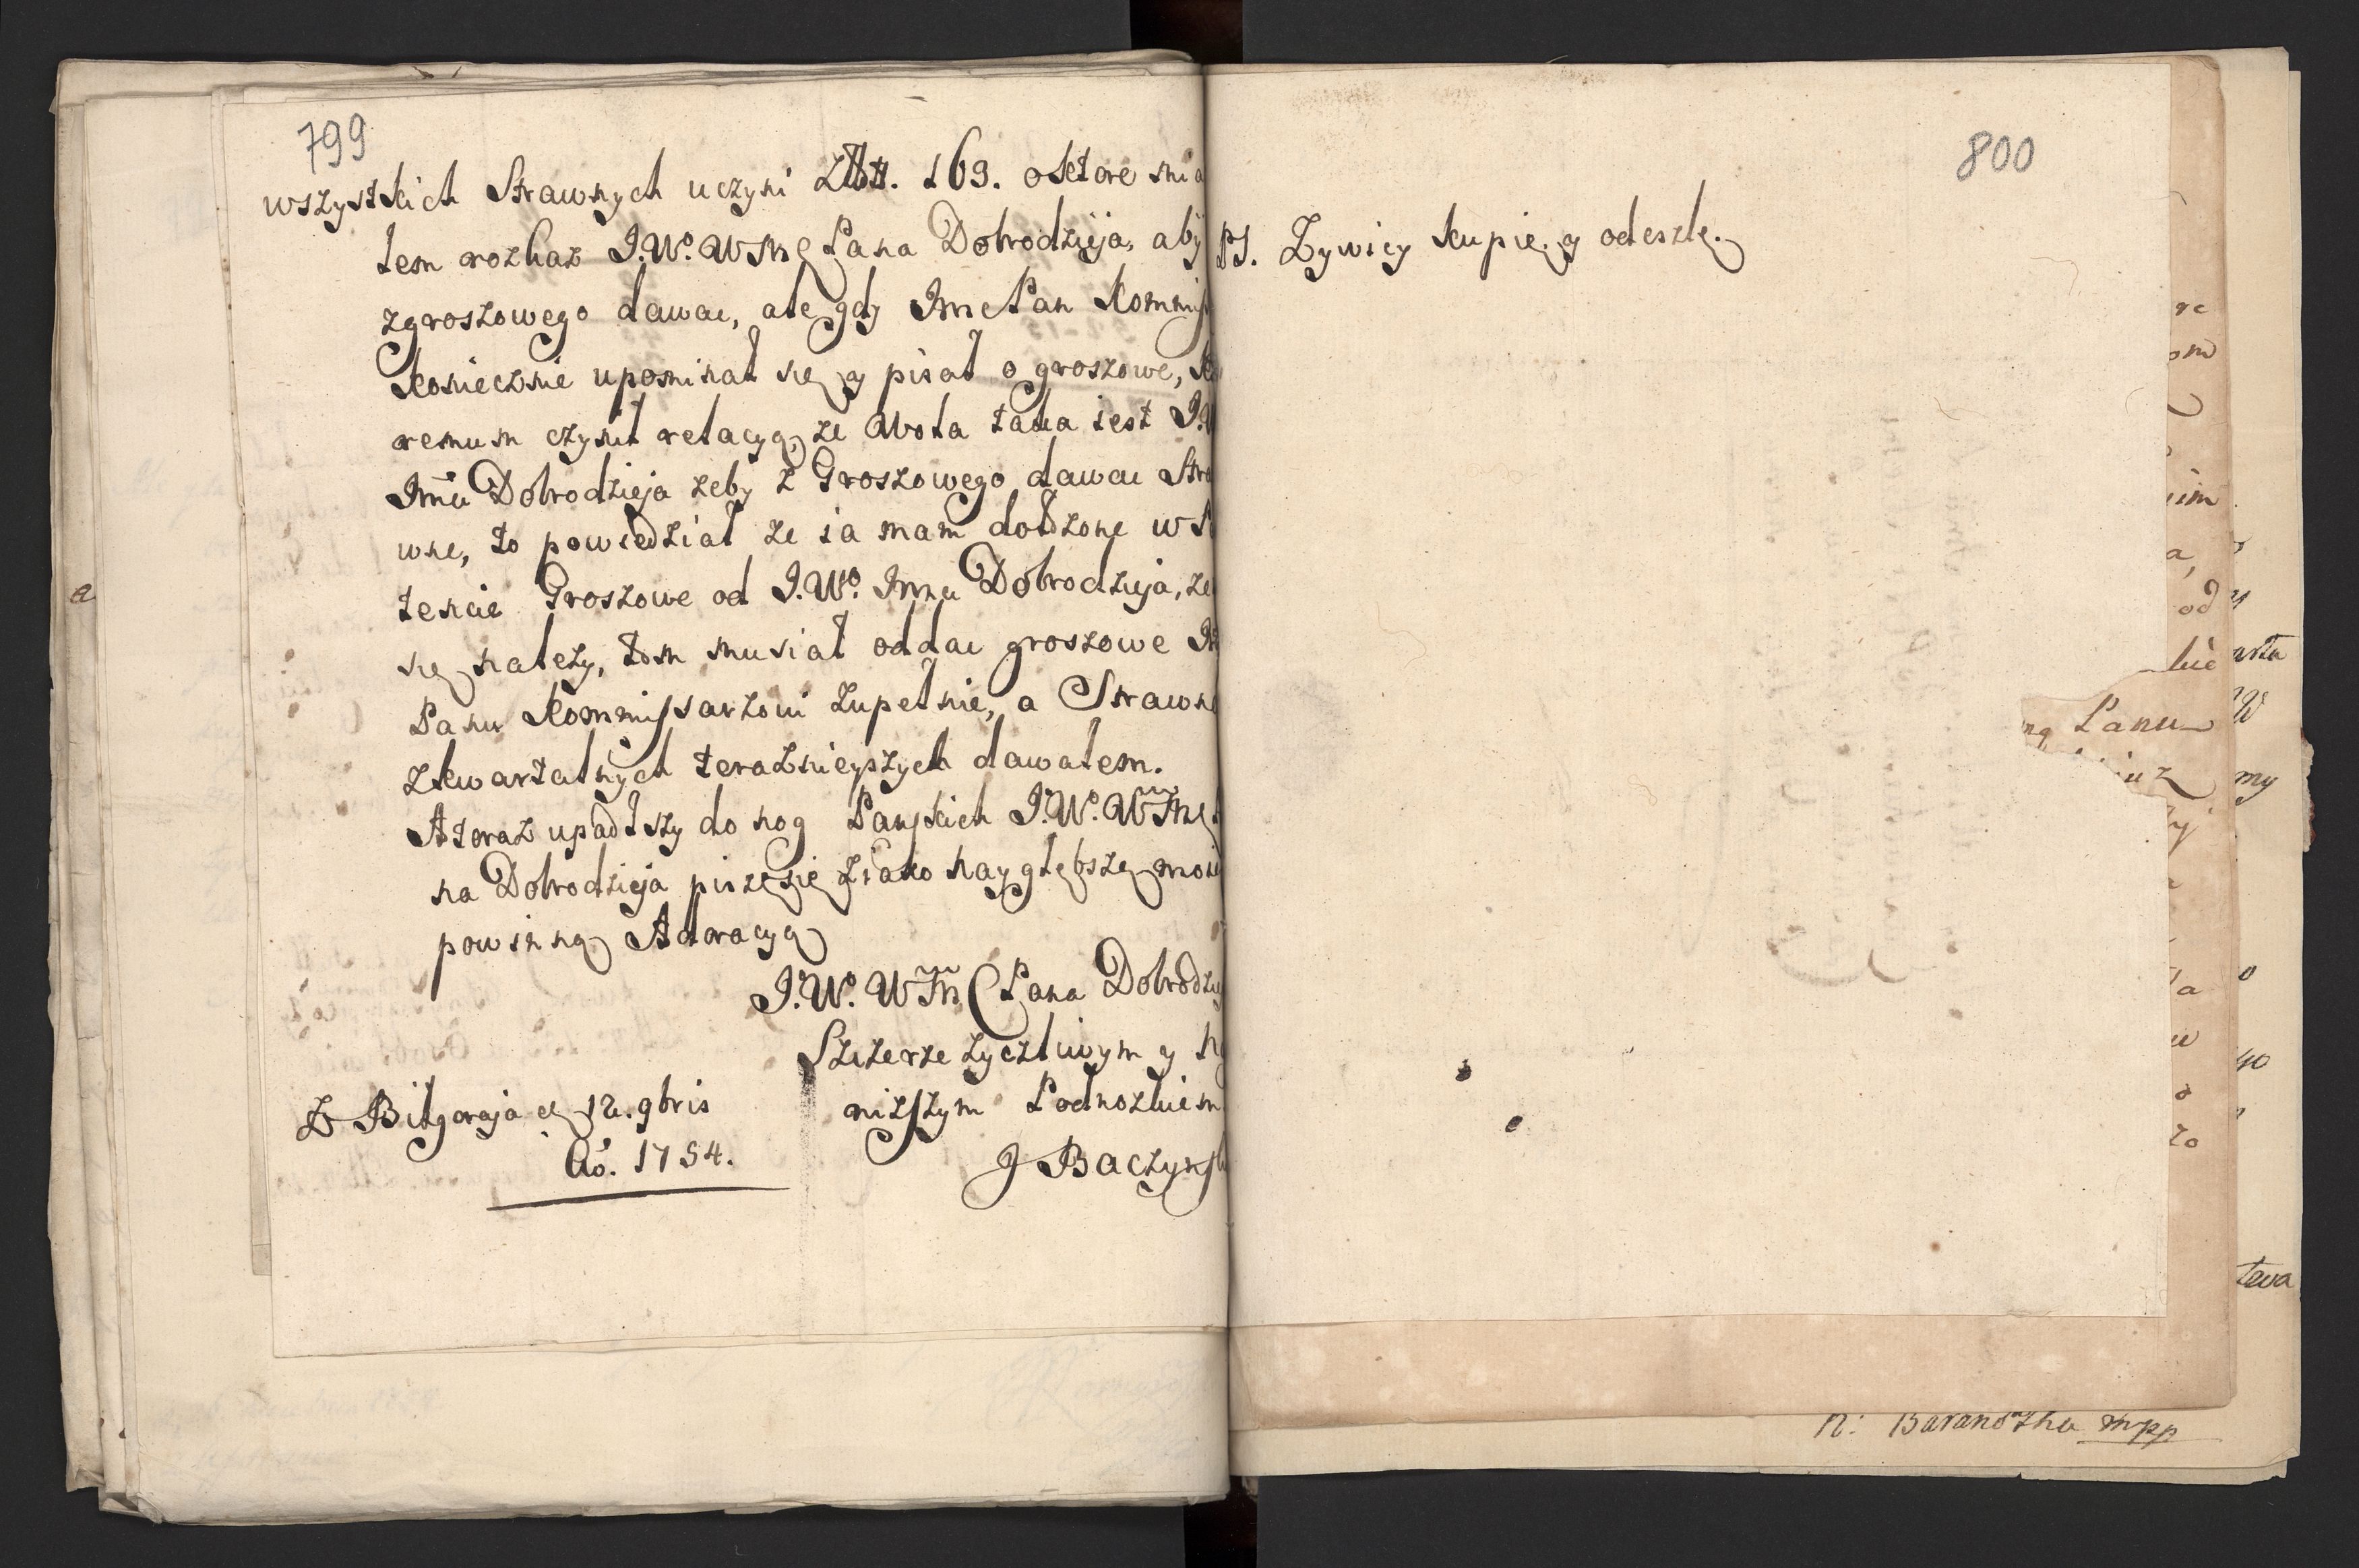 799
wszystkich Strawnych uczyni Złtt. 169. o ktore mia
łem rozkaz J.W.º WMę Pana Dobrodzieja, aby
zgroszowego dawac, ale gdy Jmć Pan Kommiss
koniecznie upominał się y pisał o groszowe,
remum czynił relacyą, ze wola taka iest J.W
Jmci Dobrodzieja zeby z Groszowego dawac Stra
wne, to powiedział ze ia mam dołozone w
tencie Groszowe od J.Wº. Jmci Dobrodzieja, ze
się należy, tom musiał oddac groszowe
Panu Kommissarzowi zupełnie, a Strawne
zkwartalnych teraznieyszych dawałem.
A teraz upadłszy do nog Panskich J.W.º WMę
na Dobrodzieja piszę się z iako naygłębszą moią
powinną Adoracyą
J.W.º WM Pana Dobrodziej
Szczerze zyczliwym y
nizszym Podnozkiem
J Baczynsk
Z Biłgoraja d 12. 9bris
Aº. 1754.
800
PS. Zywicy kupię y odeszlę.
od
Panu
my
N: Baranozka mpp